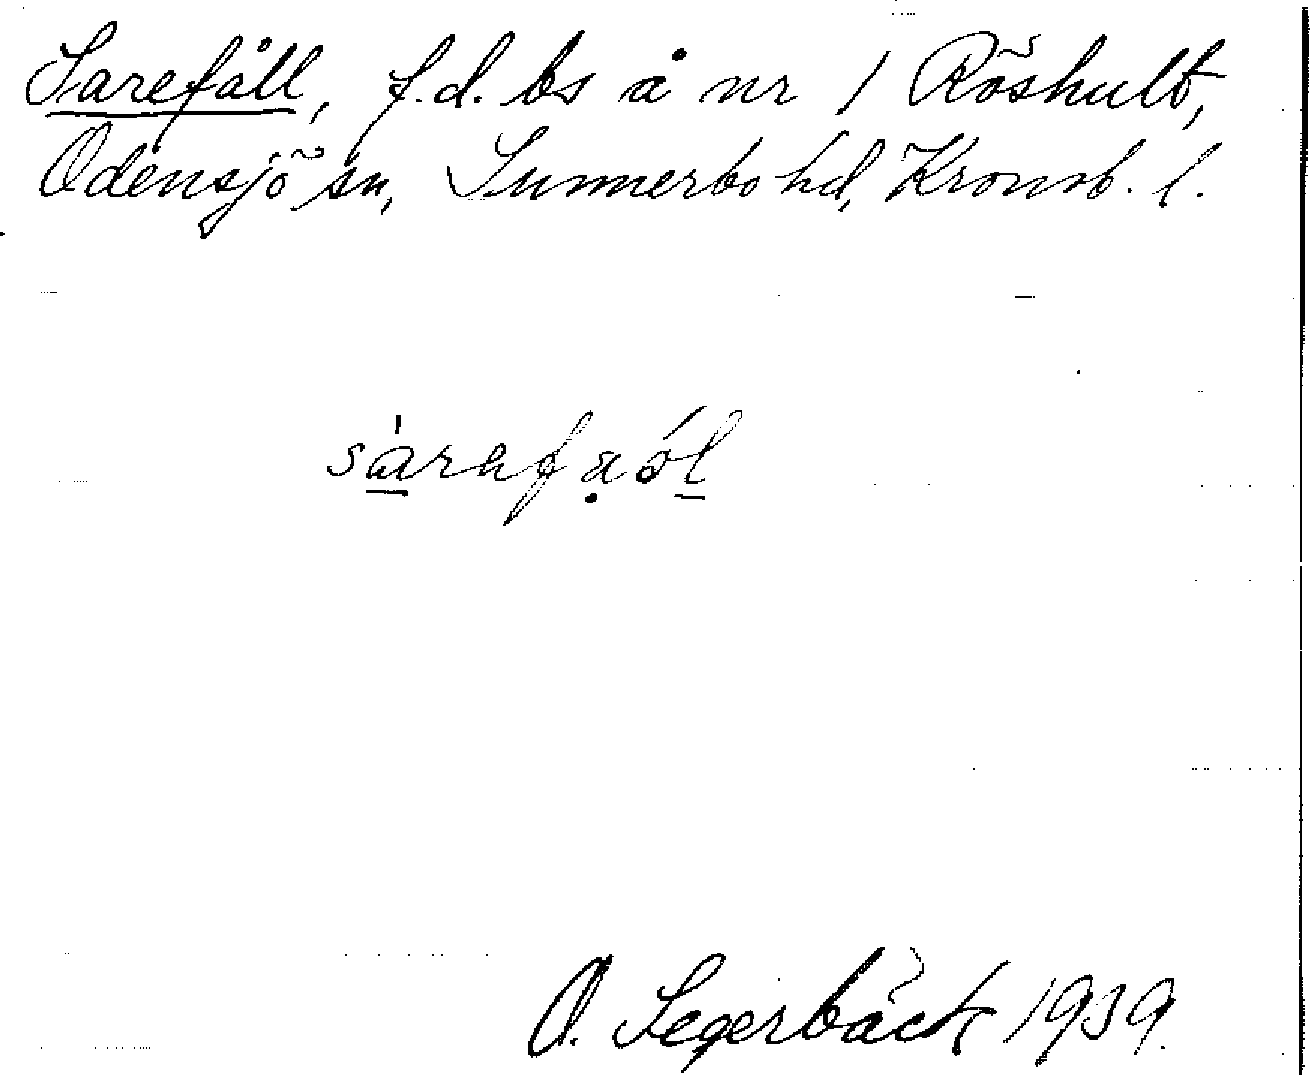 Sarefåll, f.d. bs å nr 1 Röshult,
Odensjö sn, Sunnerbo hd, Kronob. l.
O. Segerbäck 1939.